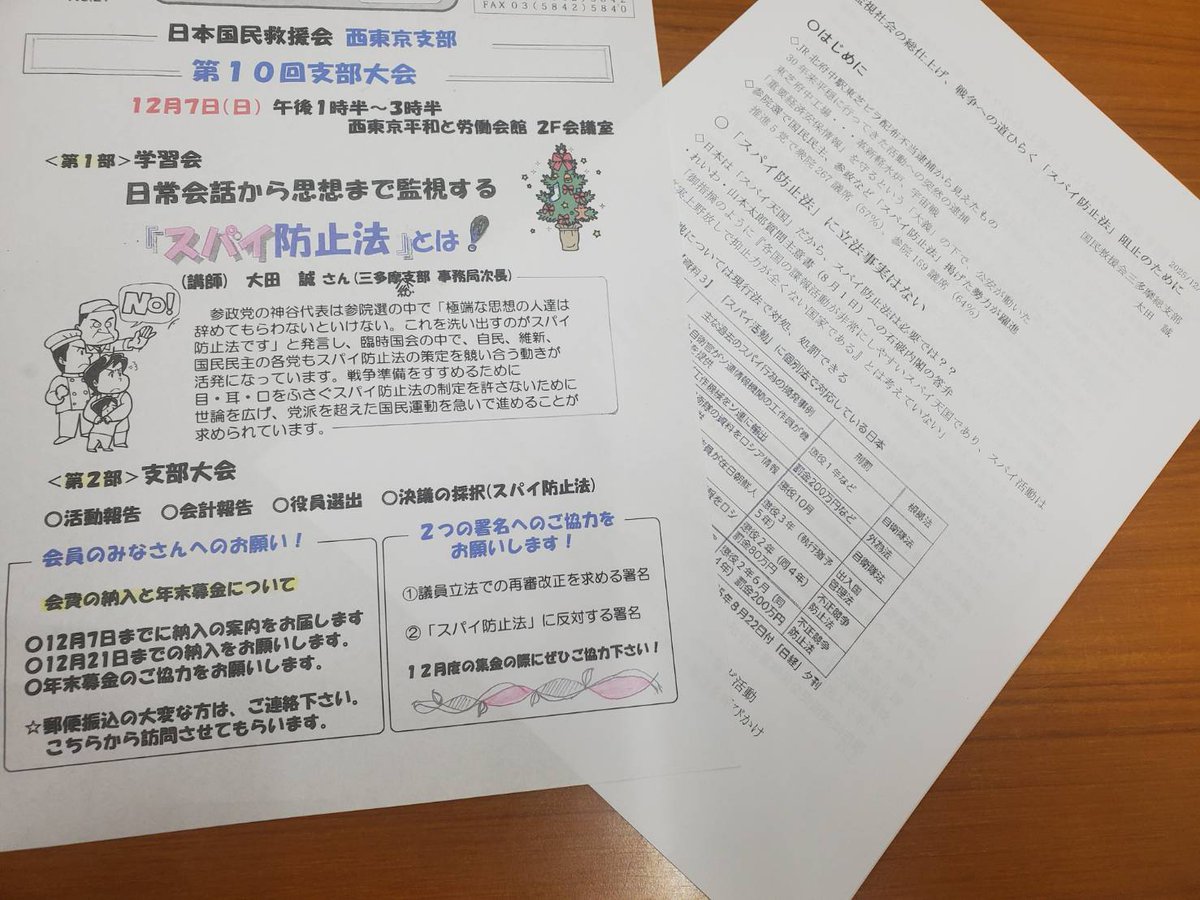 FAX 03(5842)5840
日本国民救援会 西東京支部
第10回支部大会
12月7日(日) 午後1時半～3時半
西東京平和と労働会館 2F会議室
<第1部>学習会
日常会話から思想まで監視する
『スパイ防止法』とは!
(講師) 大田 誠さん(三多摩総支部 事務局次長)
NO!
参政党の神谷代表は参院選の中で「極端な思想の人達は
辞めてもらわないといけない。これを洗い出すのがスパイ
防止法です」と発言し、臨時国会の中で、自民、維新、
国民民主の各党もスパイ防止法の策定を競い合う動きが
活発になっています。戦争準備をすすめるために
目・耳・口をふさぐスパイ防止法の制定を許さないために
世論を広げ、党派を超えた国民運動を急いで進めることが
求められています。
<第2部>支部大会
○活動報告 ○会計報告 ○役員選出 ○決議の採択(スパイ防止法)
会員のみなさんへのお願い!
会費の納入と年末募金について
○12月7日までに納入の案内をお届します
○12月21日までの納入をお願いします。
○年末募金のご協力をお願いします。
☆郵便振込の大変な方は、ご連絡下さい。
こちらから訪問させてもらいます。
2つの署名へのご協力を
お願いします!
①議員立法での再審改正を求める署名
②「スパイ防止法」に反対する署名
12月度の集金の際にぜひご協力下さい!
監視社会の総仕上げ、戦争への道ひらく「スパイ防止法」阻止のために
国民救援会三多摩総支部
大田 誠
○はじめに
◇JR北府中駅東芝ビラ配布不当逮捕から見えたもの
30年来平穏に行ってきた活動への突然の逮捕
東芝府中工場・・・革新軽水炉、宇宙戦
「重要経済安保情報」を守るという「大義」の下で、公安が動いた
◇参院選で国民民主、参政など「スパイ防止法」掲げた勢力が躍進
推進5党で衆院267議席(57%)、参院159議席(64%)
○「スパイ防止法」に立法事実はない
◇日本は「スパイ天国」だから、スパイ防止法は必要では??
れいわ・山本太郎質問主意書(8月1日)への石破内閣の答弁
「御指摘のように『各国の諜報活動が非常にしやすいスパイ天国であり、スパイ活動は
事実上野放しで抑止力が全くない国家である』とは考えていない」
については現行法で対処、処罰できる
資料3】「スパイ活動」に個別法で対応している日本
主な過去のスパイ行為の摘発事例 刑罰 根拠法
懲役1年など 自衛隊法
工作機械をソ連に輸出 罰金200万円など 外為法
懲役10月 自衛隊法
懲役3年(執行猶予5年) 出入国管理法
懲役2年(同4年) 罰金80万円 不正競争防止法
懲役2年6月(同4年) 罰金200万円 不正競争防止法
5年8月22日付「日経」夕刊
活動
びかけ